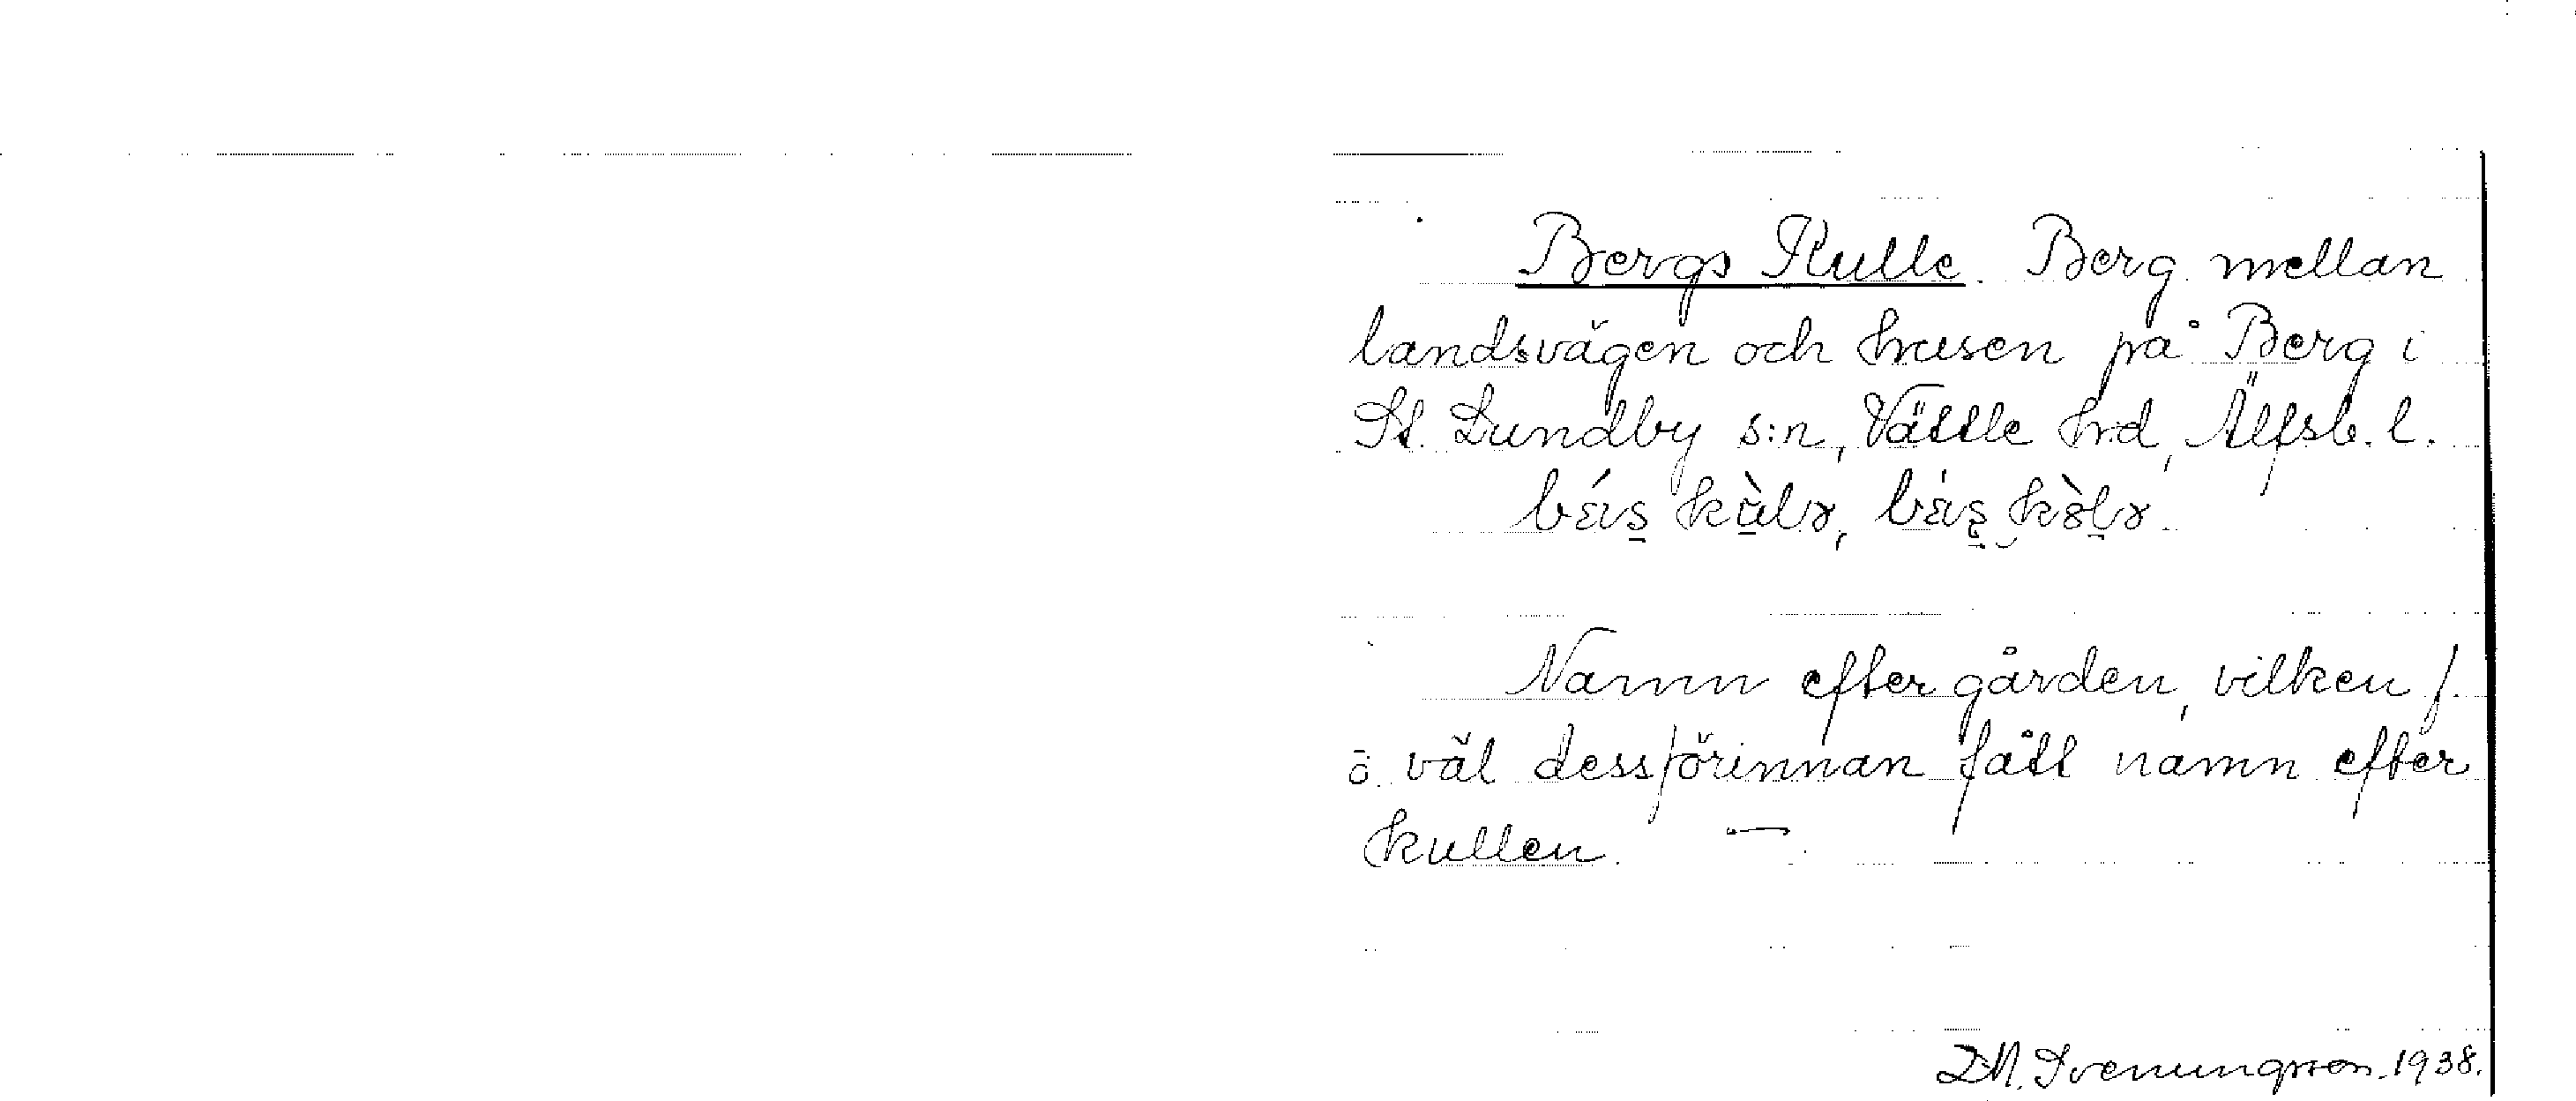 Bergs Kulle. Berg mellan
landsvägen och husen på Berg i
St. Lundby s:n, Vättle hd, Älfsb. l.
Namn efter gården, vilken f.
ö. väl dessförinnan fått namn efter
kullen. —
Svenungsson. 1938.